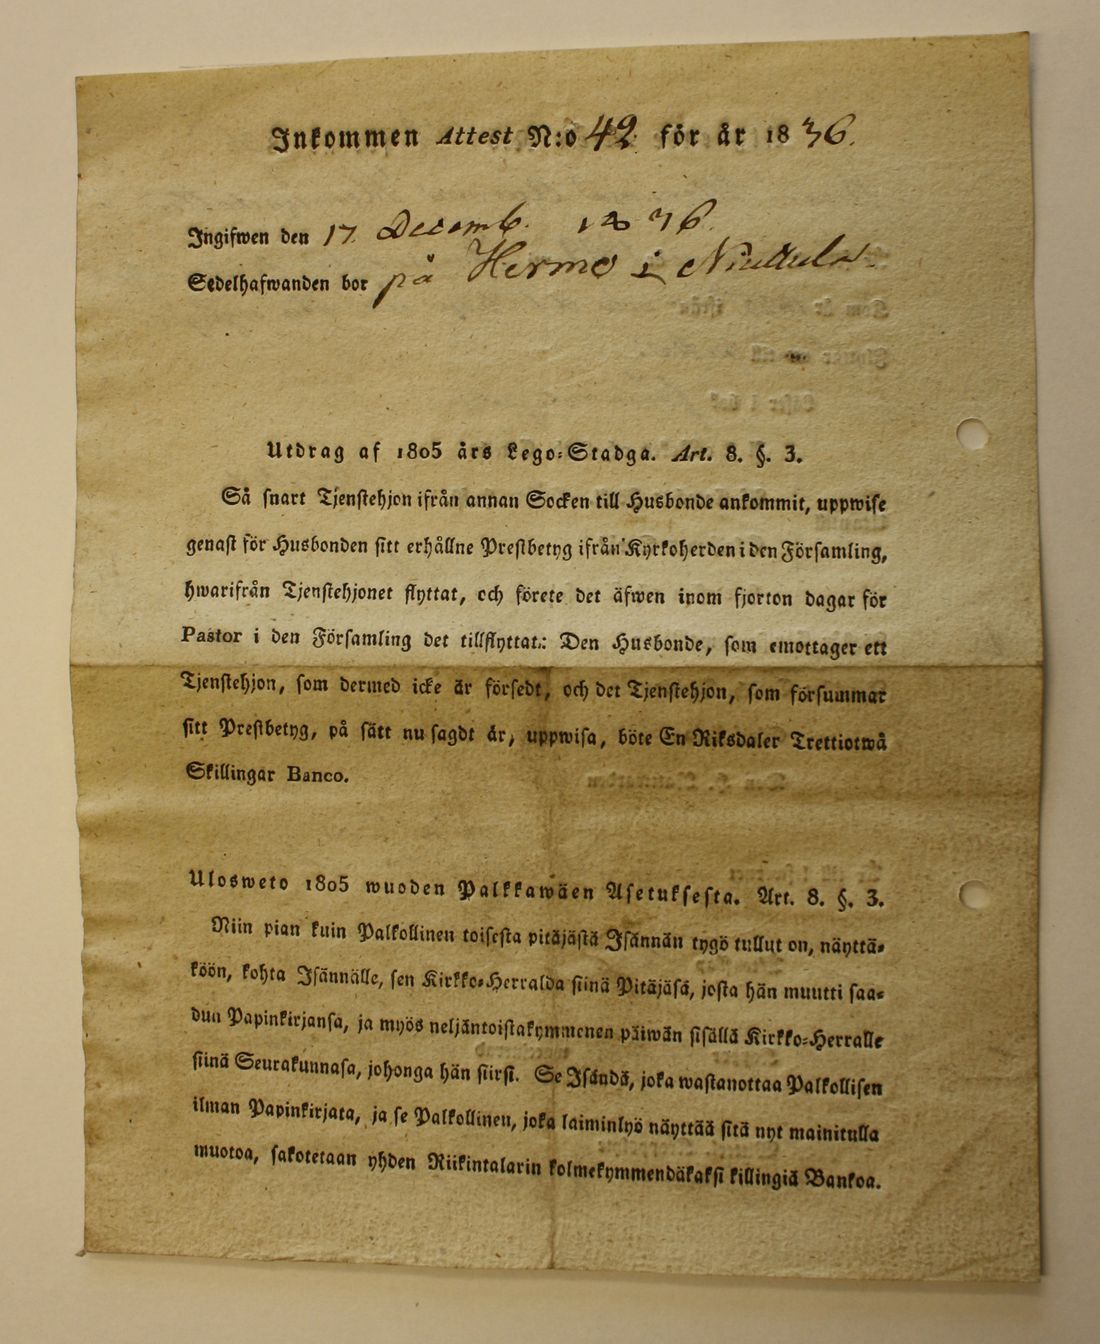 Inkommen Attest N:o 42 för år 1836.
Ingifwen den 17 Decemb. 1836.
Sedelhafwanden bor på Hermo i
Utdrag af 1805 års Lego-Stadga. Art. 8. §. 3.
Så snart Tjenstehjon ifrån annan Socken till Husbonde ankommit, uppwise
genast för Husbonden sitt erhållne Prestbetyg ifrån Kyrkoherden i den Församling,
hwarifrån Tjenstehjonet flyttat, och förete det äfwen inom fjorton dagar för
Pastor i den Församling det tillflyttat: Den Husbonde, som emottager ett
Tjenstehjon, som dermed icke är försedt, och det Tjenstehjon, som försummar
sitt Prestbetyg, på sätt nu sagdt är, uppwisa, böte En Riksdaler Trettiotwå
Skillingar Banco.
Ulosweto 1805 wuoden Palkkawäen Asetuksesta. Art. 8. §. 3.
Niin pian kuin Palkollinen toisesta pitäjästä Isännän tygö tullut on, näyttä-
köön, kohta Isännälle, sen Kirkko-Herralda siinä Pitäjäsä, josta hän muutti saa-
dun Papinkirjansa, ja myös neljäntoistakymmenen päiwän sisällä Kirkko-Herralle
siinä Seurakunnasa, johonga hän siirsi. Se Isändä, joka wastanottaa Palkollisen
ilman Papinkirjata, ja se Palkollinen, joka laiminlyö näyttää sitä nyt mainitulla
muotoa, sakotetaan yhden Riikintalarin kolmekymmendäkaksi killingiä Bankoa.